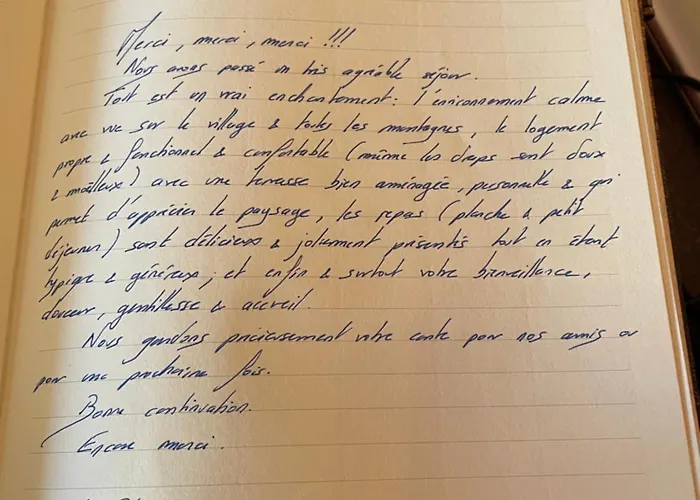 Merci, merci, merci !!!
Nous avons passé un très agréable séjour.
Tout est un vrai enchantement : l'environnement calme
avec vue sur le village & toutes les montagnes, le logement
propre & fonctionnel & confortable (même les draps sont doux
& moëlleux) avec une terrasse bien aménagée, personnelle & qui
permet d'apprécier le paysage, les repas (planche & petit
déjeuner) sont délicieux & joliement présentés tout en étant
typique & généreux ; et enfin & surtout votre bienveillance,
douceur, gentillesse & accueil.
Nous gardons précieusement votre carte pour nos amis ou
pour une prochaine fois.
Bonne continuation.
Encore merci.